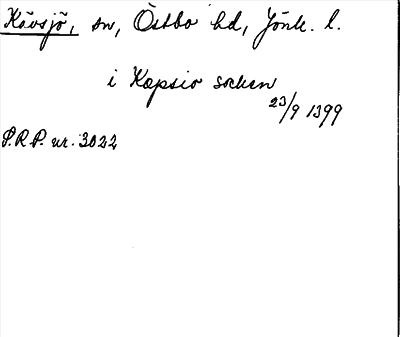 Kävsjö, sn, Östbo hd, Jönk. l.
i Kapsio socken
23/9 1399
S.R.P. nr. 3022